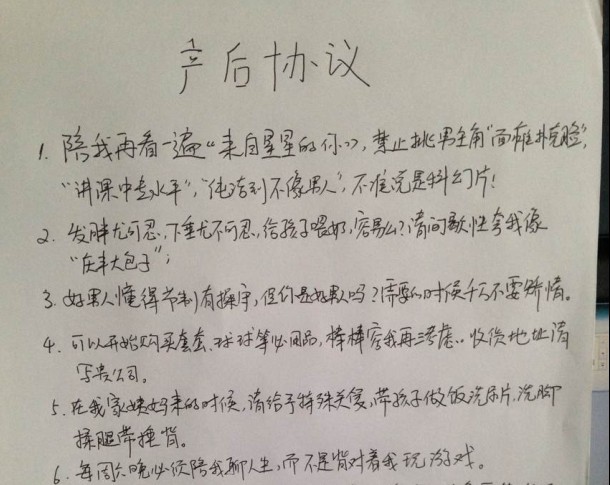 产后协议
1. 陪我再看一遍“来自星星的你”，禁止挑男主角“面瘫扑克脸”，
“讲课中专水平”，“纯洁到不像男人”，不准说是科幻片！
2. 发胖尤可忍，下垂尤不可忍，给孩子喂奶，容易么？请间歇性夸我像
“庆丰大包子”；
3. 好男人懂得节制有操守，但你是好男人吗？需要的时候千万不要矫情。
4. 可以开始购买套套、球球等必用品，棒棒容我再考虑.. 收货地址请
写贵公司。
5. 在我家姨妈来的时候，请给予特殊关爱，带孩子做饭洗尿片，洗脚
揉腿带捶背。
6. 每周六晚必须陪我聊人生，而不是背对着我玩游戏。